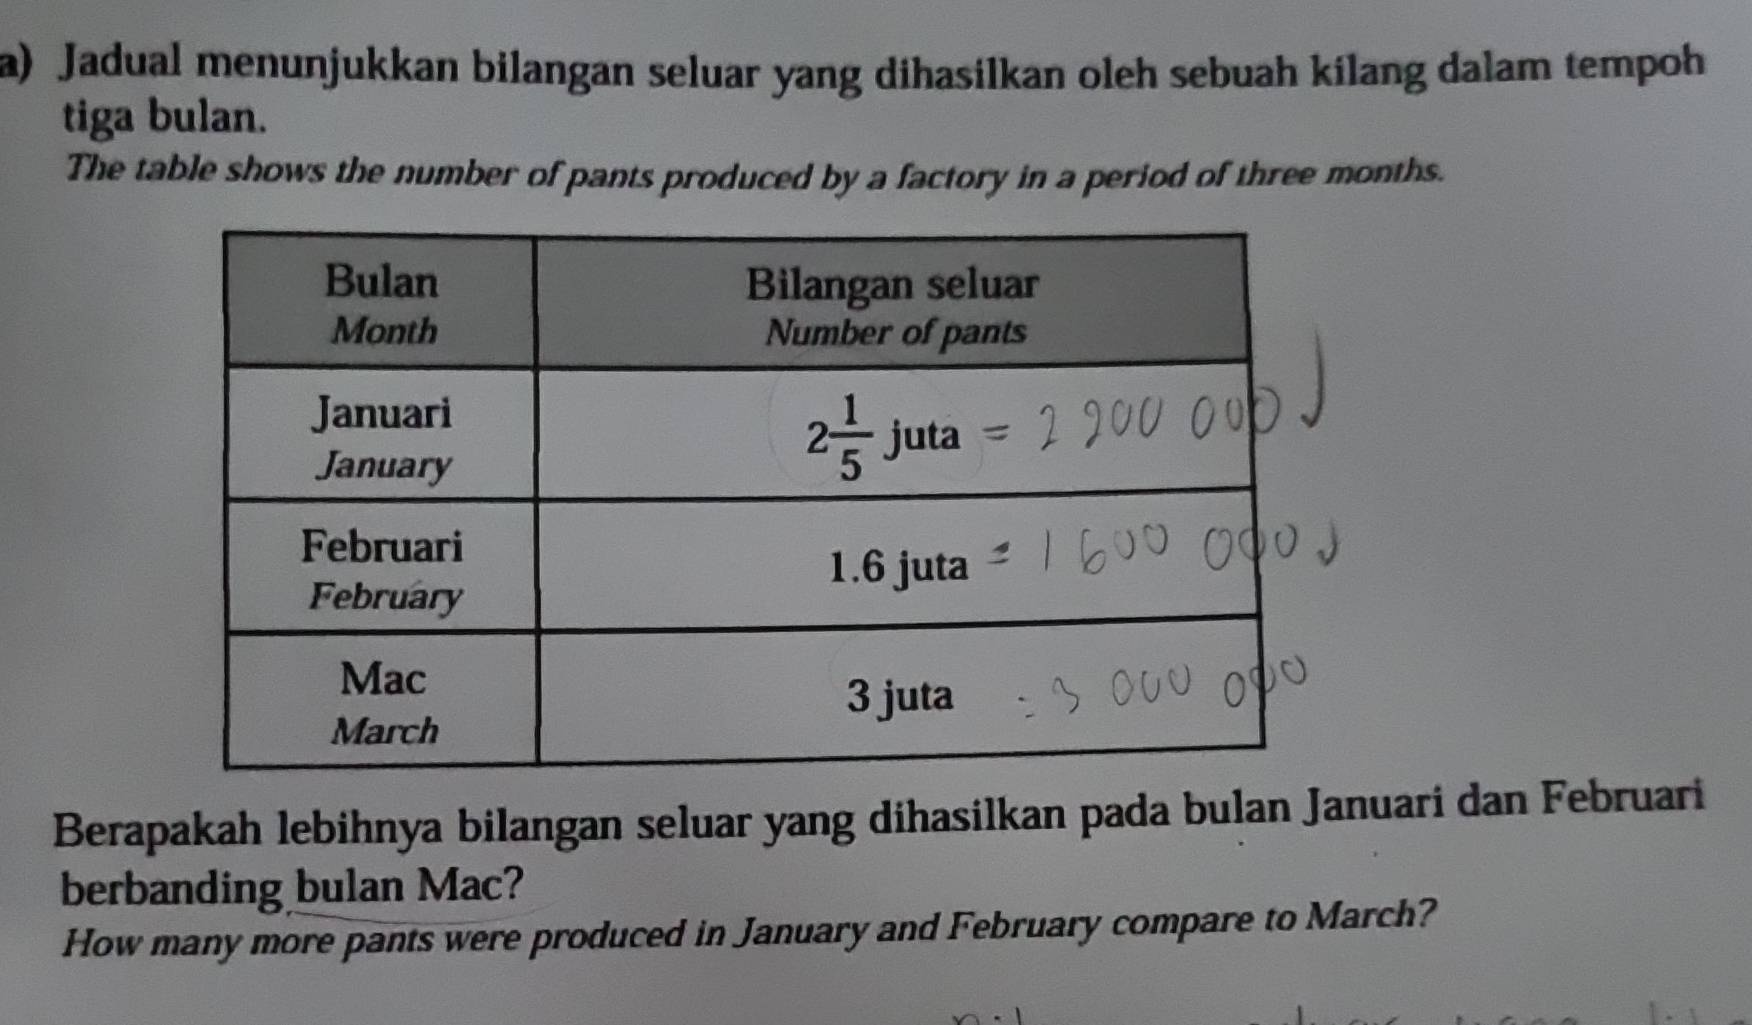 a) Jadual menunjukkan bilangan seluar yang dihasilkan oleh sebuah kilang dalam tempoh
tiga bulan.
The table shows the number of pants produced by a factory in a period of three months.
Bulan
Month
Bilangan seluar
Number of pants
Januari
January
2 1/5 juta = 2 200 000
Februari
February
1.6 juta = 1 600 000
Mac
March
3 juta = 3 000 000
Berapakah lebihnya bilangan seluar yang dihasilkan pada bulan Januari dan Februari
berbanding bulan Mac?
How many more pants were produced in January and February compare to March?